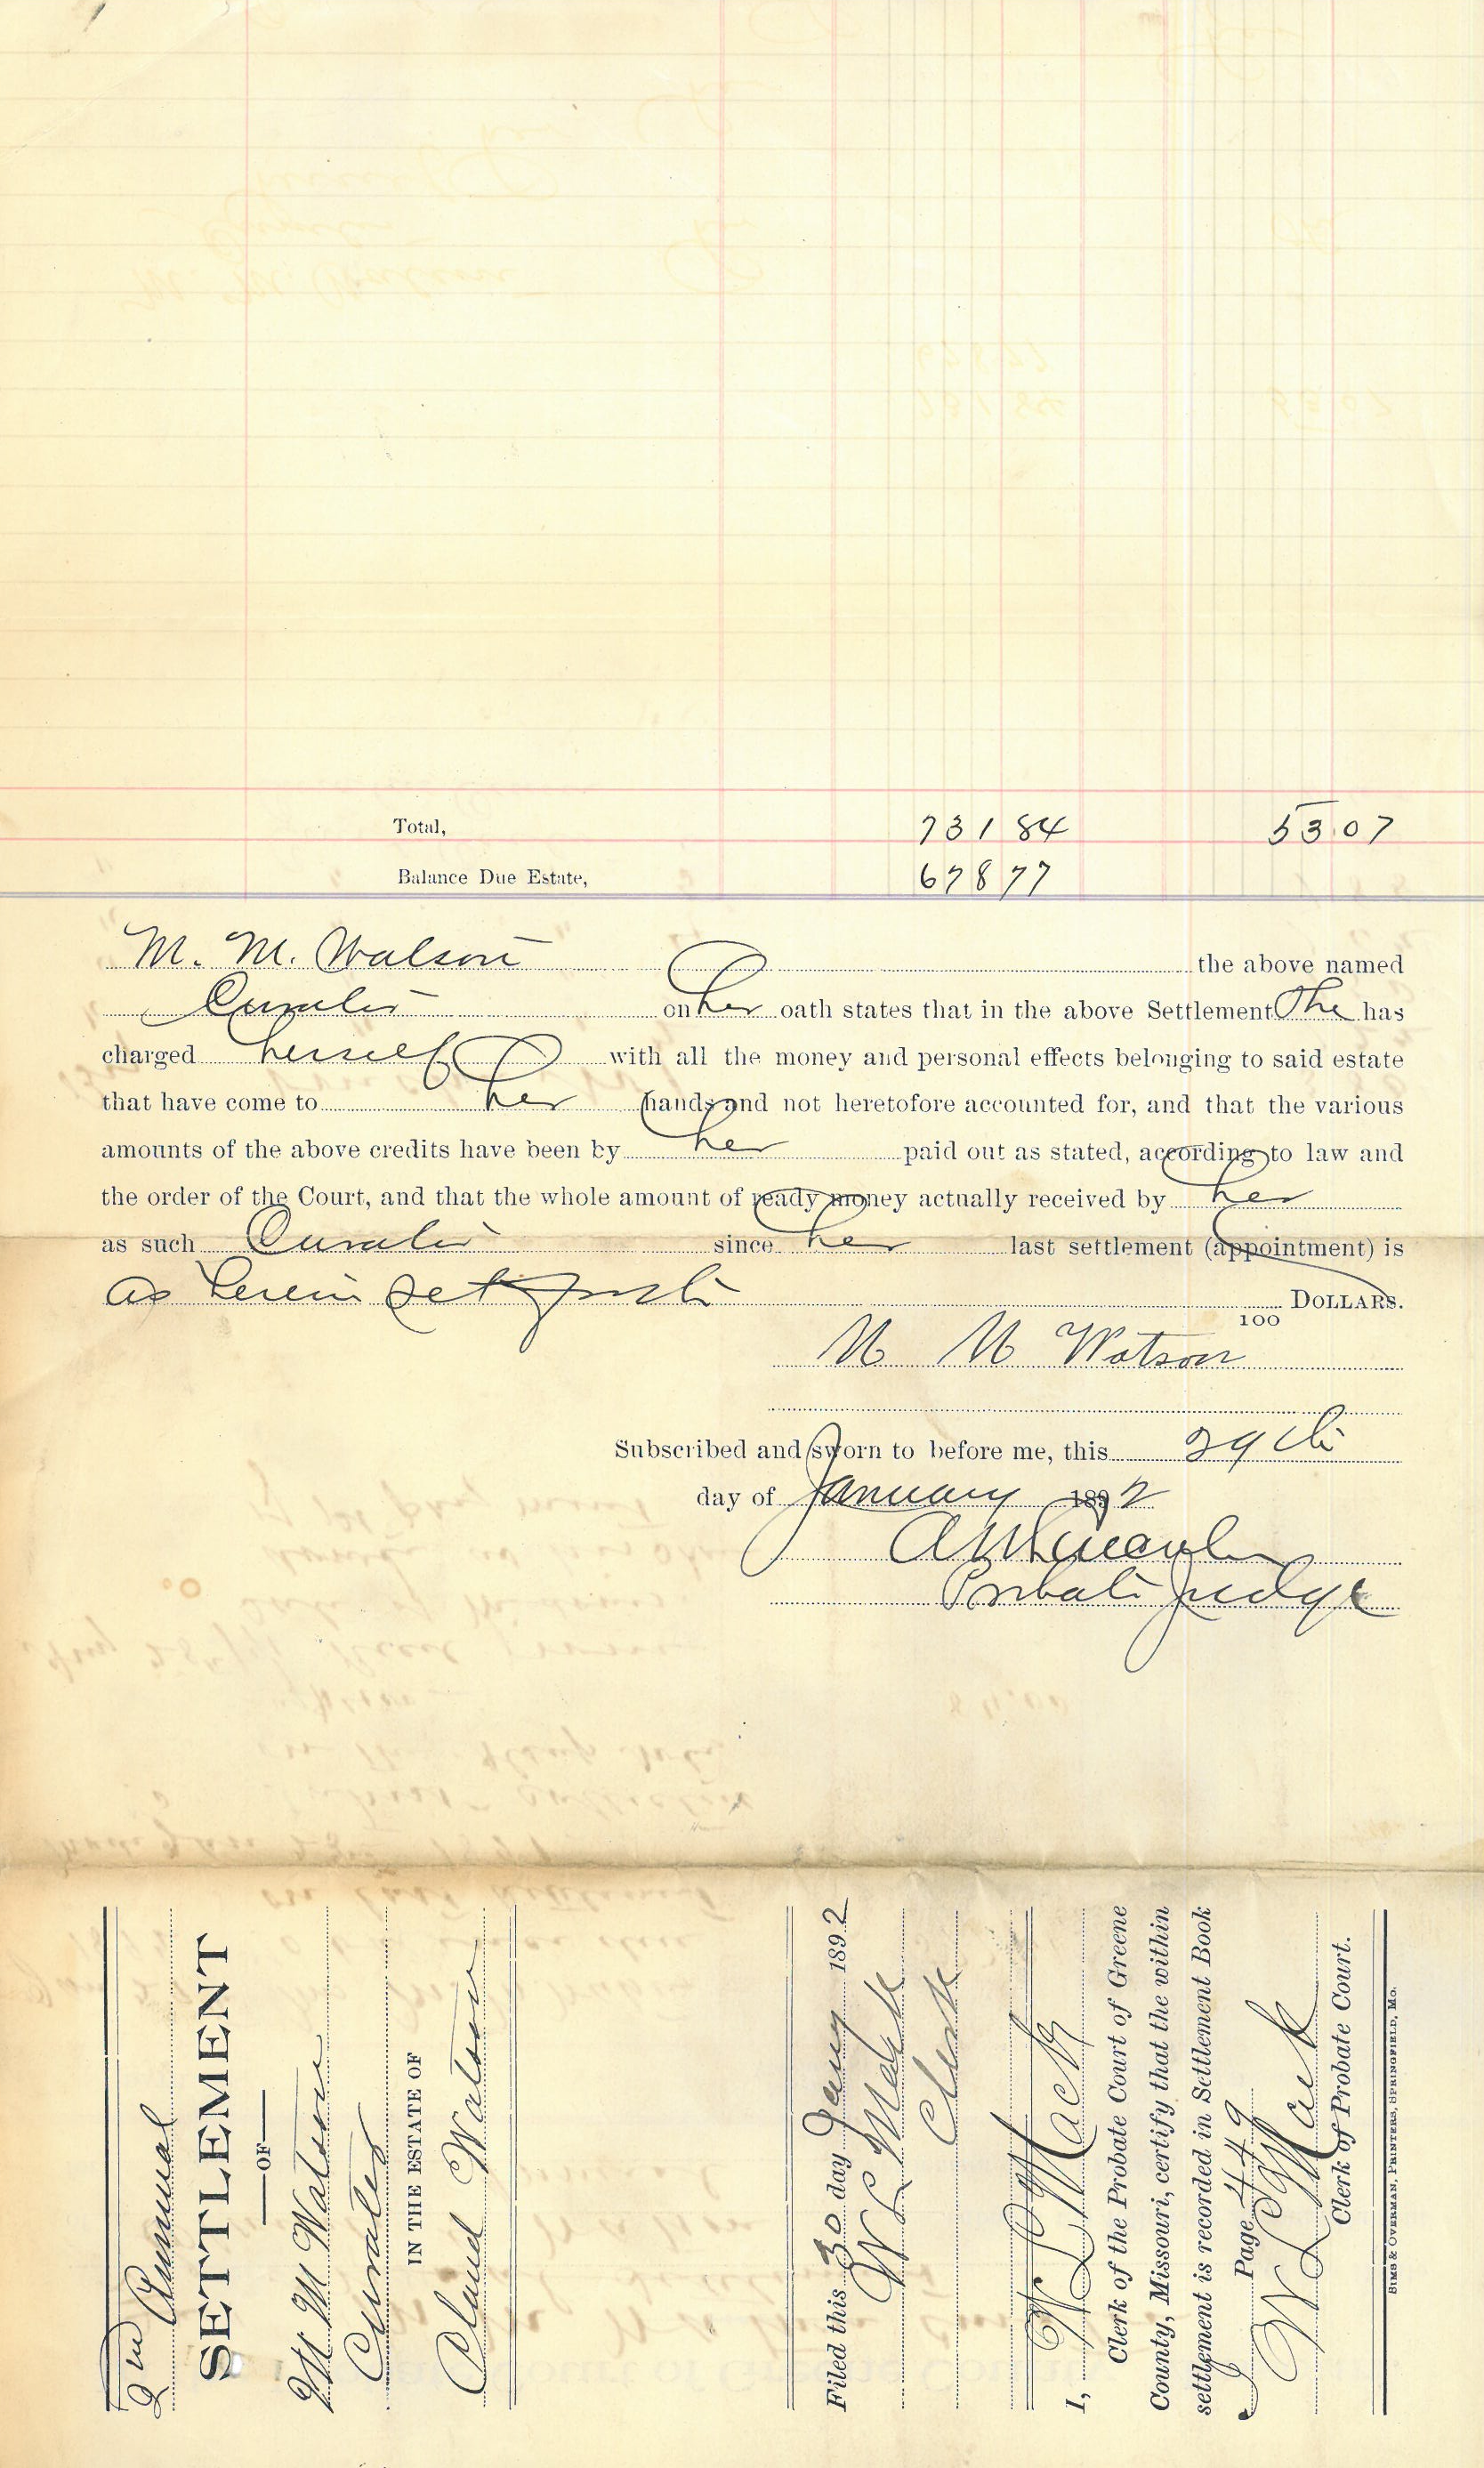 Total, 731 84 53 07
Balance Due Estate, 678 77
M. M. Watson the above named
Curator on her oath states that in the above Settlement She has
charged herself with all the money and personal effects belonging to said estate
that have come to her hands and not heretofore accounted for, and that the various
amounts of the above credits have been by her paid out as stated, according to law and
the order of the Court, and that the whole amount of ready money actually received by her
as such Curator since her last settlement (appointment) is
as herein set forth DOLLARS.
100
M M Watson
Subscribed and sworn to before me, this 29th
day of January 1892
Probate Judge
2nd Annual
SETTLEMENT
OF
M M Watson
Curator
IN THE ESTATE OF
Claud Watson
Filed this 30 day Jany 1892
W L Mack
Clerk
I, W L Mack
Clerk of the Probate Court of Greene
County, Missouri, certify that the within
settlement is recorded in Settlement Book
J Page 449
W L Mack
Clerk of Probate Court.
SIMS & OVERMAN, PRINTERS, SPRINGFIELD, MO.